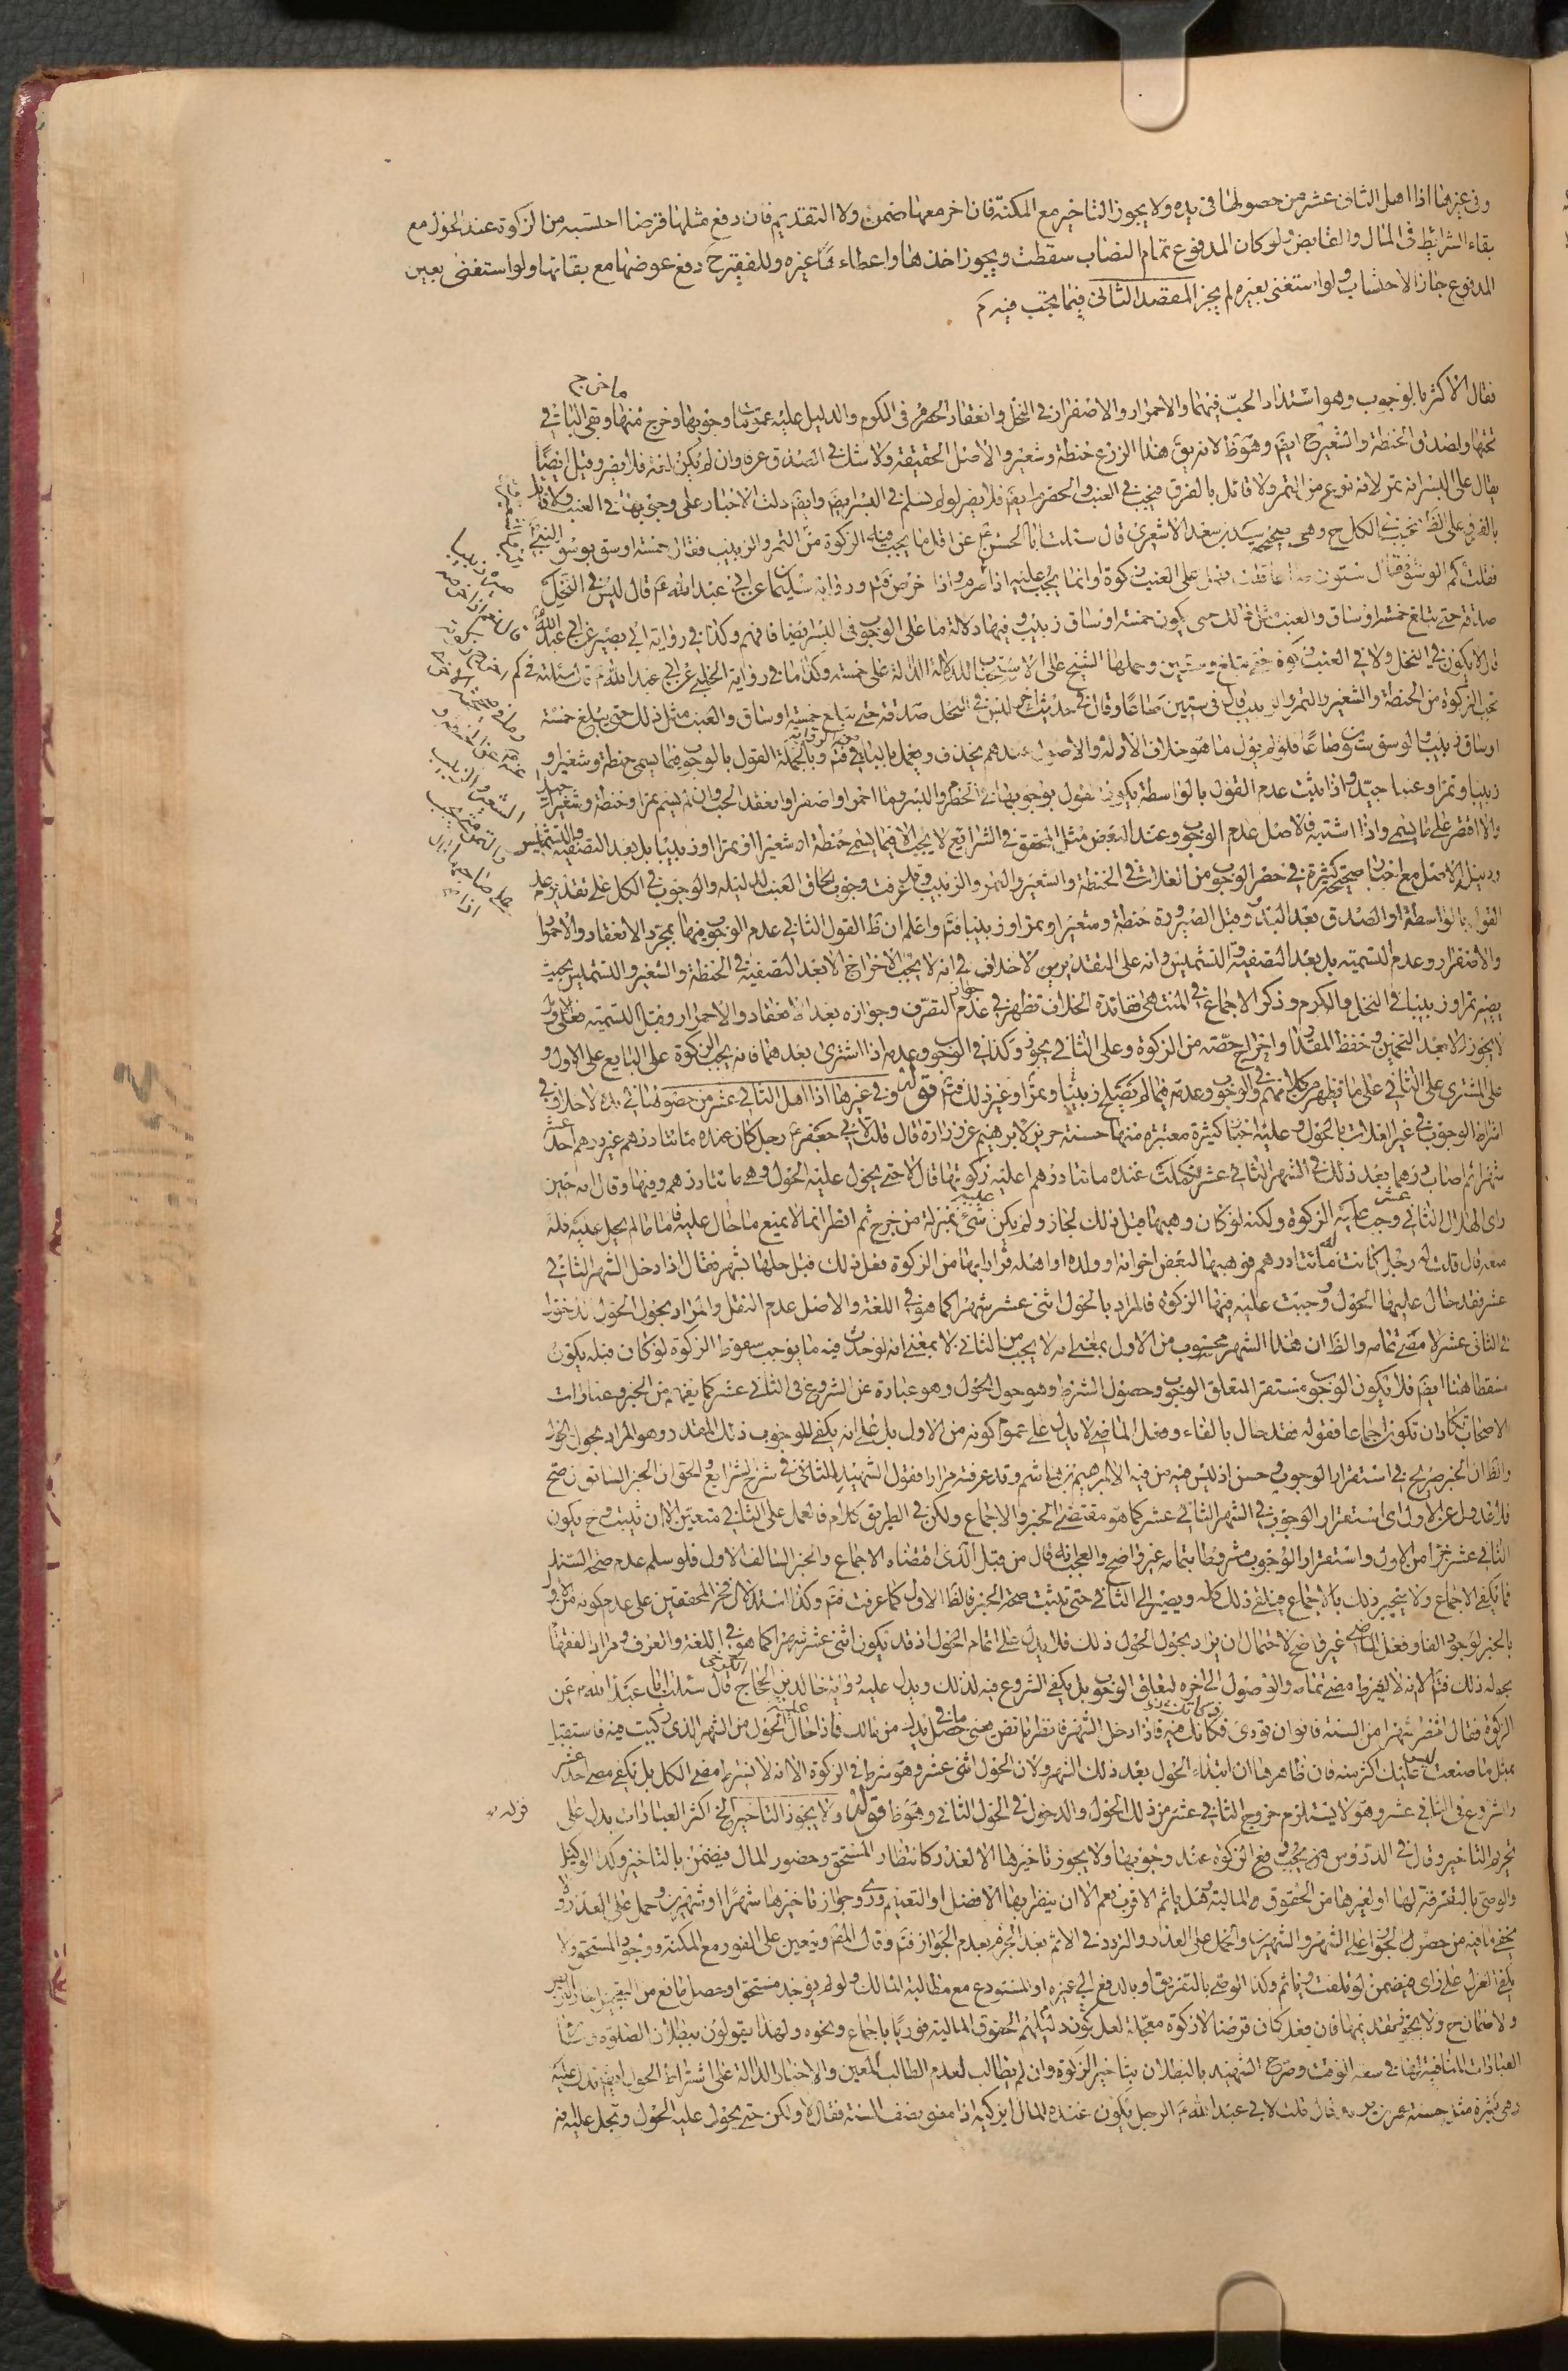 وفى غيرها اذا اهل الثانى عشر من حصولها فى يده ولا يجوز التاخير مع المكنة فان اخر معها ضمن ولا التقديم فان دفع مثلها قرضا احتسبه من الزكوة عند الحول مع
بقاء الشرايط فى المال والقابض ولو كان المدفوع تمام النصاب سقطت ويجوز اخذها واعطاء غيره وللفقير ح دفع عوضها مع بقائها ولو استغنى بعين
المدفوع جاز الاحتساب ولو استغنى بغيره لم يجز المقصد الثانى فيما يجب فيه
فقال الاكثر بالوجوب وهو اشتداد الحب فيهما والاحمرار والاصفرار فى النخل وانعقاد الحصرم فى الكرم والدليل عليه عمومات وجوبها وخرج منها وبقى الباقى
تحتها ولصدق الحنطة والشعير ح ايضا وهو ظ لانه يق هذا الزرع حنطة وشعير والاصل الحقيقة ولا شك فى الصدق عرفا وان لم يكن لغة فلا يضر وقيل ايضا
يقال على البسر انه تمر لانه نوع من التمر ولا قائل بالفرق فيجب فى العنب والحصرم ايضا فلا يضر لو لم يسلم فى البسر ايضا وايضا دلت الاخبار على وجوبها فى العنب ولا قائل
بالفرق على الظ فتجب فى الكل ح وهى صحيحة سعد بن سعد الاشعرى قال سئلت ابا الحسن ع عن اقل ما يجب فيه الزكوة من التمر والزبيب فقال خمسة اوسق بوسق النبى
فقلت كم الوسق فقال ستون صاعا قلت فهل على العنب زكوة او انما يجب عليه اذا صيره زبيبا قال نعم اذا خرصه ورواية سليمان عن ابى عبد الله ع قال ليس فى النخل
صدقة حتى تبلغ خمسة اوساق والعنب مثل ذلك حتى يكون خمسة اوساق زبيب وفيهما دلالة ما على الوجوب فى البسر ايضا فافهم وكذا فى رواية ابى بصير عن ابى عبد الله
قال لا يكون فى النخل ولا فى العنب زكوة حتى تبلغ وسقين وحملها الشيخ على الاستحباب للادلة الدالة على خمسة وكذا ما فى رواية الحلبى عن ابى عبد الله ع قال سئلته فى كم
تجب الزكوة من الحنطة والشعير والتمر والزبيب قال فى ستين صاعا وقال فى حديث اخر ليس فى النخل صدقة حتى تبلغ خمسة اوساق والعنب مثل ذلك حتى يبلغ خمسة
اوساق زبيب والوسق ستون صاعا
زبيبا وتمرا وعنبا جيد واذا ثبت عدم القول بالواسطة يكون القول بوجوبها فى الحصرم والبسر وما احمر او اصفر او انعقد الحب وان لم يسم تمرا وحنطة وشعيرا جيدا
والا اقتصر على ما يسمى واذا اشتبه فالاصل عدم الوجوب وعند البعض مثل المحقق فى الشرايع لا يجب الا فيما يسمى حنطة او شعيرا او تمرا او زبيبا بل بعد التصفية والتشميس
ودليله الاصل مع اخبار صحيحة كثيرة فى حصر الوجوب من الغلات فى الحنطة والشعير والتمر والزبيب وقد عرفت وجوب الحاق العنب لدليله والوجوب فى الكل على تقدير عدم
القول بالواسطة او الصدق بعد البدو وقبل الصيرورة حنطة وشعيرا وتمرا وزبيبا فتم واعلم ان ظ القول الثانى عدم الوجوب فيهما بمجرد الانعقاد والاحمرار
والاصفرار وعدم التسمية بل بعد التصفية والتشميس وانه على التقديرين لا خلاف فى انه لا يجب الاخراج الا بعد التصفية فى الحنطة والشعير والتشميس بحيث
يصير تمرا وزبيبا فى النخل والكرم وذكر الاجماع فى المنتهى ففائدة الخلاف تظهر فى عدم جواز التصرف وجوازه بعد الانعقاد والاحمرار وقبل التسمية فعلى الاول
لا يجوز الا بعد التخمين وحفظ المقدار واخراج حصته من الزكوة وعلى الثانى يجوز وكذا فى الوجوب وعدمه اذا اشترى بعدهما فانه يجب الزكوة على البايع على الاول و
على المشترى على الثانى على ما يظهر من كلامهم فى الوجوب وعدمه فيما لم تصلح زبيبا وتمرا وغير ذلك فتم قوله وفى غيرها اذا اهل الثانى عشر من حصولها فى يده لا خلاف فى
اشتراط الوجوب فى غير الغلات بالحول وعليه اخبار كثيرة معتبرة منها حسنة حريز لابرهيم عن زرارة قال قلت لابى جعفر ع رجل كان عنده مائتا درهم غير درهم احد عشر
شهرا ثم اصاب درهما بعد ذلك فى الشهر الثانى عشر فكملت عنده مائتا درهم اعليه زكوتها قال لا حتى يحول عليه الحول وهى مائتا درهم وفيها وقال انه حين
راى الهلال الثانى عشر وجب عليه الزكوة ولكنه لو كان وهبها قبل ذلك لجاز ولم يكن عليه شئ بمنزلة من خرج ثم افطر انما لا يمنع ما حال عليه فاما ما لم يحل عليه فله
منعه قال قلت له رجل كانت له مائتا درهم فوهبها لبعض اخوانه او ولده او اهله فرارا بها من الزكوة فعل ذلك قبل حلها بشهر فقال اذا دخل الشهر الثانى
عشر فقد حال عليها الحول ووجبت عليه فيها الزكوة فالمراد بالحول اثنى عشر شهرا كما هو فى اللغة والاصل عدم النقل والمراد بحول الحول دخول
فى الثانى عشر لا مضى تمامه والظ ان هذا الشهر محسوب من الاول بمعنى انه لا يجب من الثانى لا بمعنى انه لو حدث فيه ما يوجب سقوط الزكوة لو كان قبله يكون
مسقطا هنا ايضا فلا يكون الوجوب مستقرا لتعلق الوجوب وحصول الشرط وهو حول الحول وهو عبارة عن الشروع فى الثانى عشر كما يفهم من الخبر وعبارات
الاصحاب وكاد ان تكون اجماعا فقوله فقد حال بالفاء وفعل الماضى لا يدل على عموم كونه من الاول بل على انه يكفى للوجوب ذلك المقدار وهو المراد بحول الحول
والظ ان الخبر صريح فى استقرار الوجوب وحسن اذ ليس فيه من فيه الا ابرهيم بن هاشم وقد عرفته مرارا فقول الشهيد الثانى فى شرح الشرايع والحق ان الخبر السابق ان صح
فلا عدول عن الاول اى استقرار الوجوب فى الشهر الثانى عشر كما هو مقتضى الخبر والاجماع ولكن فى الطريق كلام فالعمل على الثانى متعين الا ان يثبت وح يكون
الثانى عشر جزءا من الاول واستقرار الوجوب مشروطا بتمامه غير واضح والعجب انه قال من قبل الذى اقتضاه الاجماع والخبر السالف الاول فلو سلم عدم صحة السند
فما يكفى الاجماع ولا ينجبر ذلك بالاجماع فيلغى ذلك كله ويصير الى الثانى حتى تثبت صحة الخبر فالظ الاول كما عرفت فتم وكذا استدلال فخر المحققين على عدم كونه من الاول
بالخبر لوجود الفاء وفعل الماضى غير واضح لاحتمال ان يراد بحول الحول ذلك فلا يدل على اتمام الحول اذ قد يكون اثنى عشر شهرا كما هو فى اللغة والعرف ومراد الفقهاء
بحوله ذلك فتم لانه لا يشترط مضى تمامه والوصول الى اخره لتعلق الوجوب بل يكفى الشروع فيه لذلك ويدل عليه رواية خالد بن الحجاج الكرخى قال سئلت ابا عبد الله ع عن
الزكوة فقال انظر شهرا من السنة فانو ان تؤدى زكاتك فيه فاذا دخل الشهر فانظر ما نض يعنى ما حصل فى يدك من مالك فزكه فاذا حال الحول من الشهر الذى زكيت فيه فاستقبل
بمثل ما صنعت ليس عليك اكثر منه فان ظاهرها ان ابتداء الحول بعد ذلك الشهر ولان الحول اثنى عشر وهو شرط فى الزكوة الا انه لا يشترط مضى الكل بل يكفى مضى احد عشر
والشروع فى الثانى عشر وهو لا يستلزم خروج الثانى عشر من ذلك الحول والدخول فى الحول الثانى وهو ظ قوله ولا يجوز التاخير الخ اكثر العبارات يدل على
تحريم التاخير وقال فى الدروس يجب دفع الزكوة عند وجوبها ولا يجوز تاخيرها الا لعذر كانتظار المستحق وحضور المال فيضمن بالتاخير وكذا الوكيل
والوصى بالتفرقة لها او لغيرها من الحقوق المالية وهل ياثم الاقرب نعم الا ان ينتظر بها الافضل او التعميم وروى جواز تاخيرها شهرا او شهرين وحمل على العذر ولا
يخفى ما فيه من حصول الجواز على الشهر والشهرين والحمل على العذر والتردد فى الاثم بعد الجزم بعدم الجواز فتم وقال المص وتعين على الفور مع المكنة ووجود المستحق ولا
يكفى العزل على راى فيضمن لو تلفت وياثم وكذا الوصى بالتفريق او بالدفع الى غيره او المستودع مع مطالبة المالك ولو لم يوجد مستحق او حصل مانع من التعجيل جاز التاخير
ولا ضمان ح ولا يجوز تقديمها فان فعل كان قرضا لا زكوة معجلة لعل كون دليلهم الحقوق المالية فوريا باجماع ونحوه ولهذا يقولون ببطلان الصلوة وسائر
العبادات المنافية لها فى سعة الوقت وصرح الشهيد بالبطلان بتاخير الزكوة وان لم يطالب لعدم الطالب المعين والاخبار الدالة على اشتراط الحول ايضا تدل عليه
وهى كثيرة مثل حسنة عمر بن يزيد قال قلت لابى عبد الله ع الرجل يكون عنده المال ايزكيه اذا مضى نصف السنة فقال لا ولكن حتى يحول عليه الحول وتحل عليه
قوله